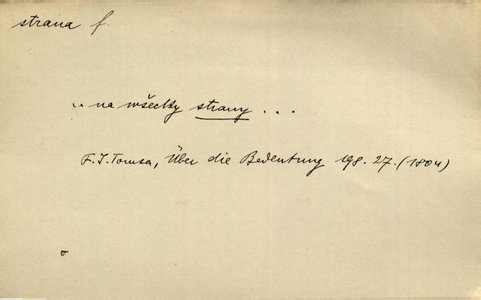 strana f.
.. na wšecky strany ...
F.J.Tomsa, Über die Bedeutung 198. 27. (1804)